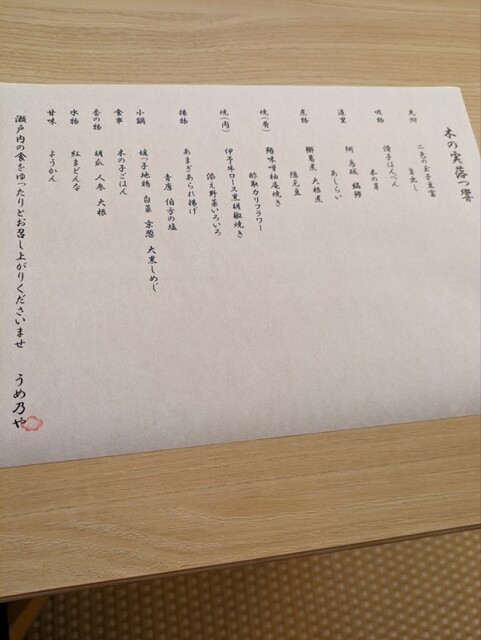 木の実落つ響
先附 二色の玉子豆富
旨出し
吸物 清子はんぺん
木の芽
造里 鯛 烏賊 鰤
あしらい
煮物 鰤蕪煮 大根煮
隠元豆
焼(肴) 鰆味噌柚庵焼き
酢取カリフラワー
焼(肉) 伊予牛ロース黒胡椒焼き
添え野菜いろいろ
揚物 あまぎあられ揚げ
青唐 伯方の塩
小鍋 媛っ子地鶏 白菜 京葱 大黒しめじ
食事 木の子ごはん
香の物 胡瓜 人参 大根
水物 紅まどんな
甘味 ようかん
瀬戸内の食をゆったりとお召し上がりくださいませ うめ乃や